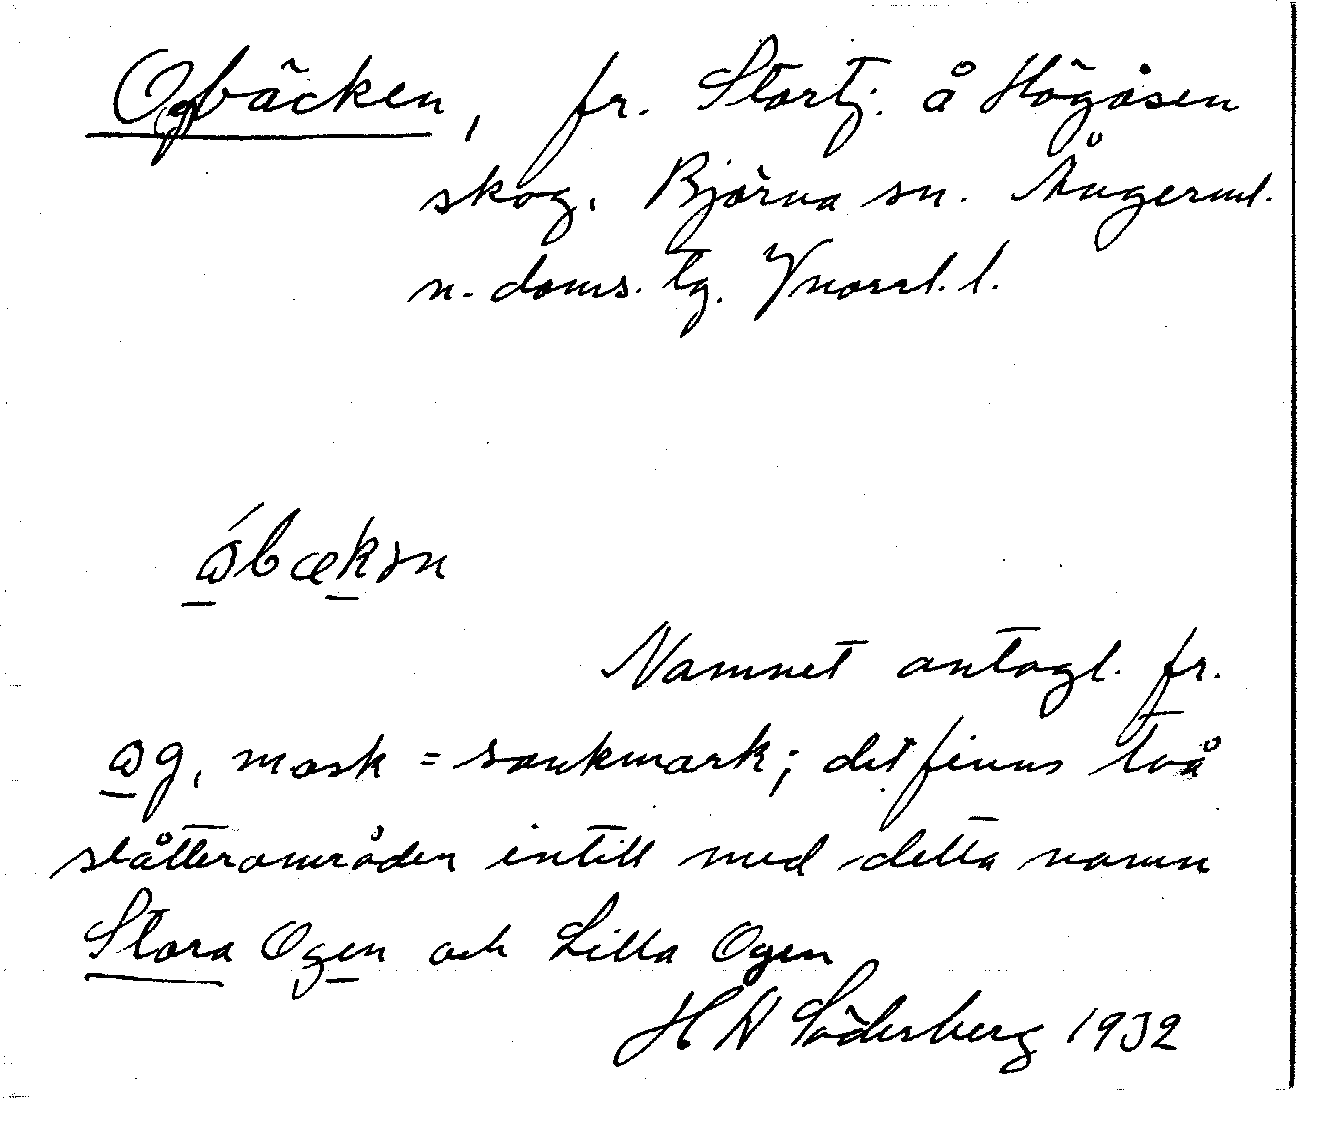 Ogbäcken, fr. Stortj. å Högåsen
skog. Björna sn. Ångerml.
n. doms. tg. Vnorrl. l.
ɷ́bækən
Namnet antagl. fr.
ɷg, mask = sankmark; det finns två
slåtterområden intill med detta namn
Stora Ogen och Lilla Ogen
H W Söderberg 1932